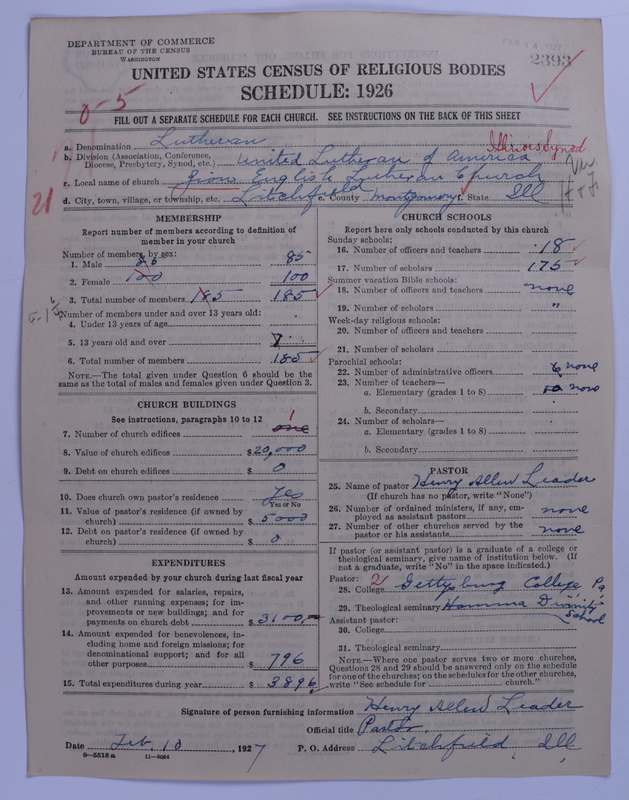 DEPARTMENT OF COMMERCE
BUREAU OF THE CENSUS
WASHINGTON
2393
UNITED STATES CENSUS OF RELIGIOUS BODIES
SCHEDULE: 1926
0-5
FILL OUT A SEPARATE SCHEDULE FOR EACH CHURCH. SEE INSTRUCTIONS ON THE BACK OF THIS SHEET
a. Denomination Lutheran Illinois Synod
b. Division (Association, Conference, Diocese, Presbytery, Synod, etc.) United Lutheran of America
c. Local name of church Zions English Lutheran Church
d. City, town, village, or township, etc. Litchfield e. County Montgomery f. State Ill
21
MEMBERSHIP
Report number of members according to definition of
member in your church
Number of members, by sex:
1. Male 85
2. Female 100 100
3. Total number of members 185 185
Number of members under and over 13 years old:
4. Under 13 years of age
5. 13 years old and over
6. Total number of members 185
NOTE.—The total given under Question 6 should be the
same as the total of males and females given under Question 3.
CHURCH BUILDINGS
See instructions, paragraphs 10 to 12
7. Number of church edifices one 1
8. Value of church edifices $20,000
9. Debt on church edifices $ 0
10. Does church own pastor's residence Yes
Yes or No
11. Value of pastor's residence (if owned by
church) $ 5000
12. Debt on pastor's residence (if owned by
church) $ 0
EXPENDITURES
Amount expended by your church during last fiscal year
13. Amount expended for salaries, repairs,
and other running expenses; for im-
provements or new buildings; and for
payments on church debt $3100.00
14. Amount expended for benevolences, in-
cluding home and foreign missions; for
denominational support; and for all
other purposes $ 796
15. Total expenditures during year $ 3896
CHURCH SCHOOLS
Report here only schools conducted by this church
Sunday schools:
16. Number of officers and teachers 18
17. Number of scholars 175
Summer vacation Bible schools:
18. Number of officers and teachers none
19. Number of scholars "
Week-day religious schools:
20. Number of officers and teachers
21. Number of scholars
Parochial schools:
22. Number of administrative officers none
23. Number of teachers—
a. Elementary (grades 1 to 8) none
b. Secondary
24. Number of scholars—
a. Elementary (grades 1 to 8)
b. Secondary
PASTOR
25. Name of pastor Henry Allen Leader
(If church has no pastor, write "None")
26. Number of ordained ministers, if any, em-
ployed as assistant pastors none
27. Number of other churches served by the
pastor or his assistants none
If pastor (or assistant pastor) is a graduate of a college or
theological seminary, give name of institution below. (If
not a graduate, write "No" in the space indicated.)
Pastor: 2
28. College Gettysburg College Pa
29. Theological seminary Hamma Divinity School
Assistant pastor:
30. College
31. Theological seminary
NOTE.—Where one pastor serves two or more churches,
Questions 28 and 29 should be answered only on the schedule
for one of the churches; on the schedules for the other churches,
write "See schedule for church."
Signature of person furnishing information Henry Allen Leader
Official title Pastor.
Date Feb 10, 1927 P. O. Address Litchfield Ill
8—5518a 11—9054